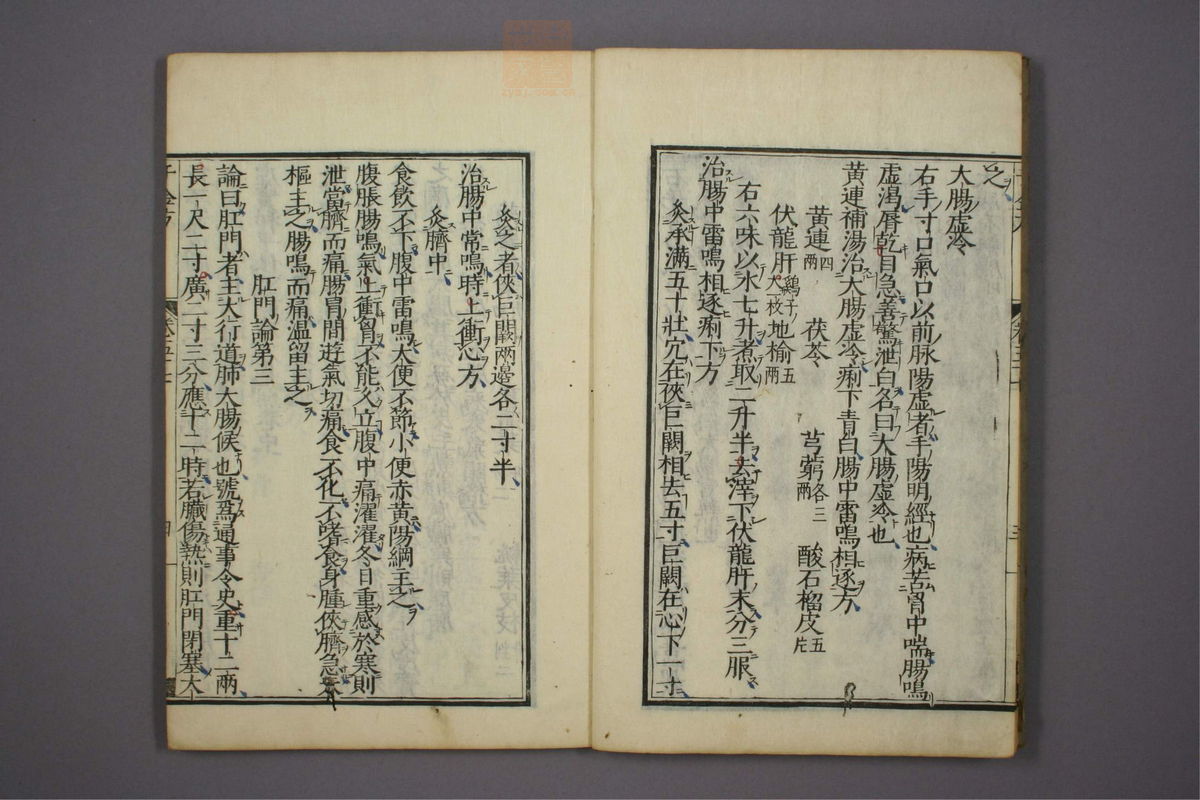 之
大腸虛冷
右手寸口氣口以前脉陽虛者手陽明經也病苦胷中喘腸鳴
虛渴脣乾目急善驚泄白名曰大腸虛冷也
黃連補湯治大腸虛冷痢下青白腸中雷鳴相逐方
黃連四兩 茯苓 芎藭各三兩 酸石榴皮五片
伏龍肝雞子大一枚 地榆五兩
右六味以水七升煮取二升半去滓下伏龍肝末分三服
治腸中雷鳴相逐痢下方
灸承滿五十壯穴在俠巨闕相去五寸巨闕在心下一寸
灸之者俠巨闕兩邊各二寸半
治腸中常鳴時上衝心方
灸臍中
食飲不下腹中雷鳴大便不節小便赤黃陽綱主之
腹脹腸鳴氣上衝胷不能久立腹中痛濯濯冬日重感於寒則
泄當臍而痛腸胃間遊氣切痛食不化不嗜食身腫俠臍急天
樞主之腸鳴而痛溫留主之
肛門論第三
論曰肛門者主大行道肺大腸候也號爲通事令史重十二兩
長一尺二寸廣二寸三分應十二時若臟傷熱則肛門閉塞大